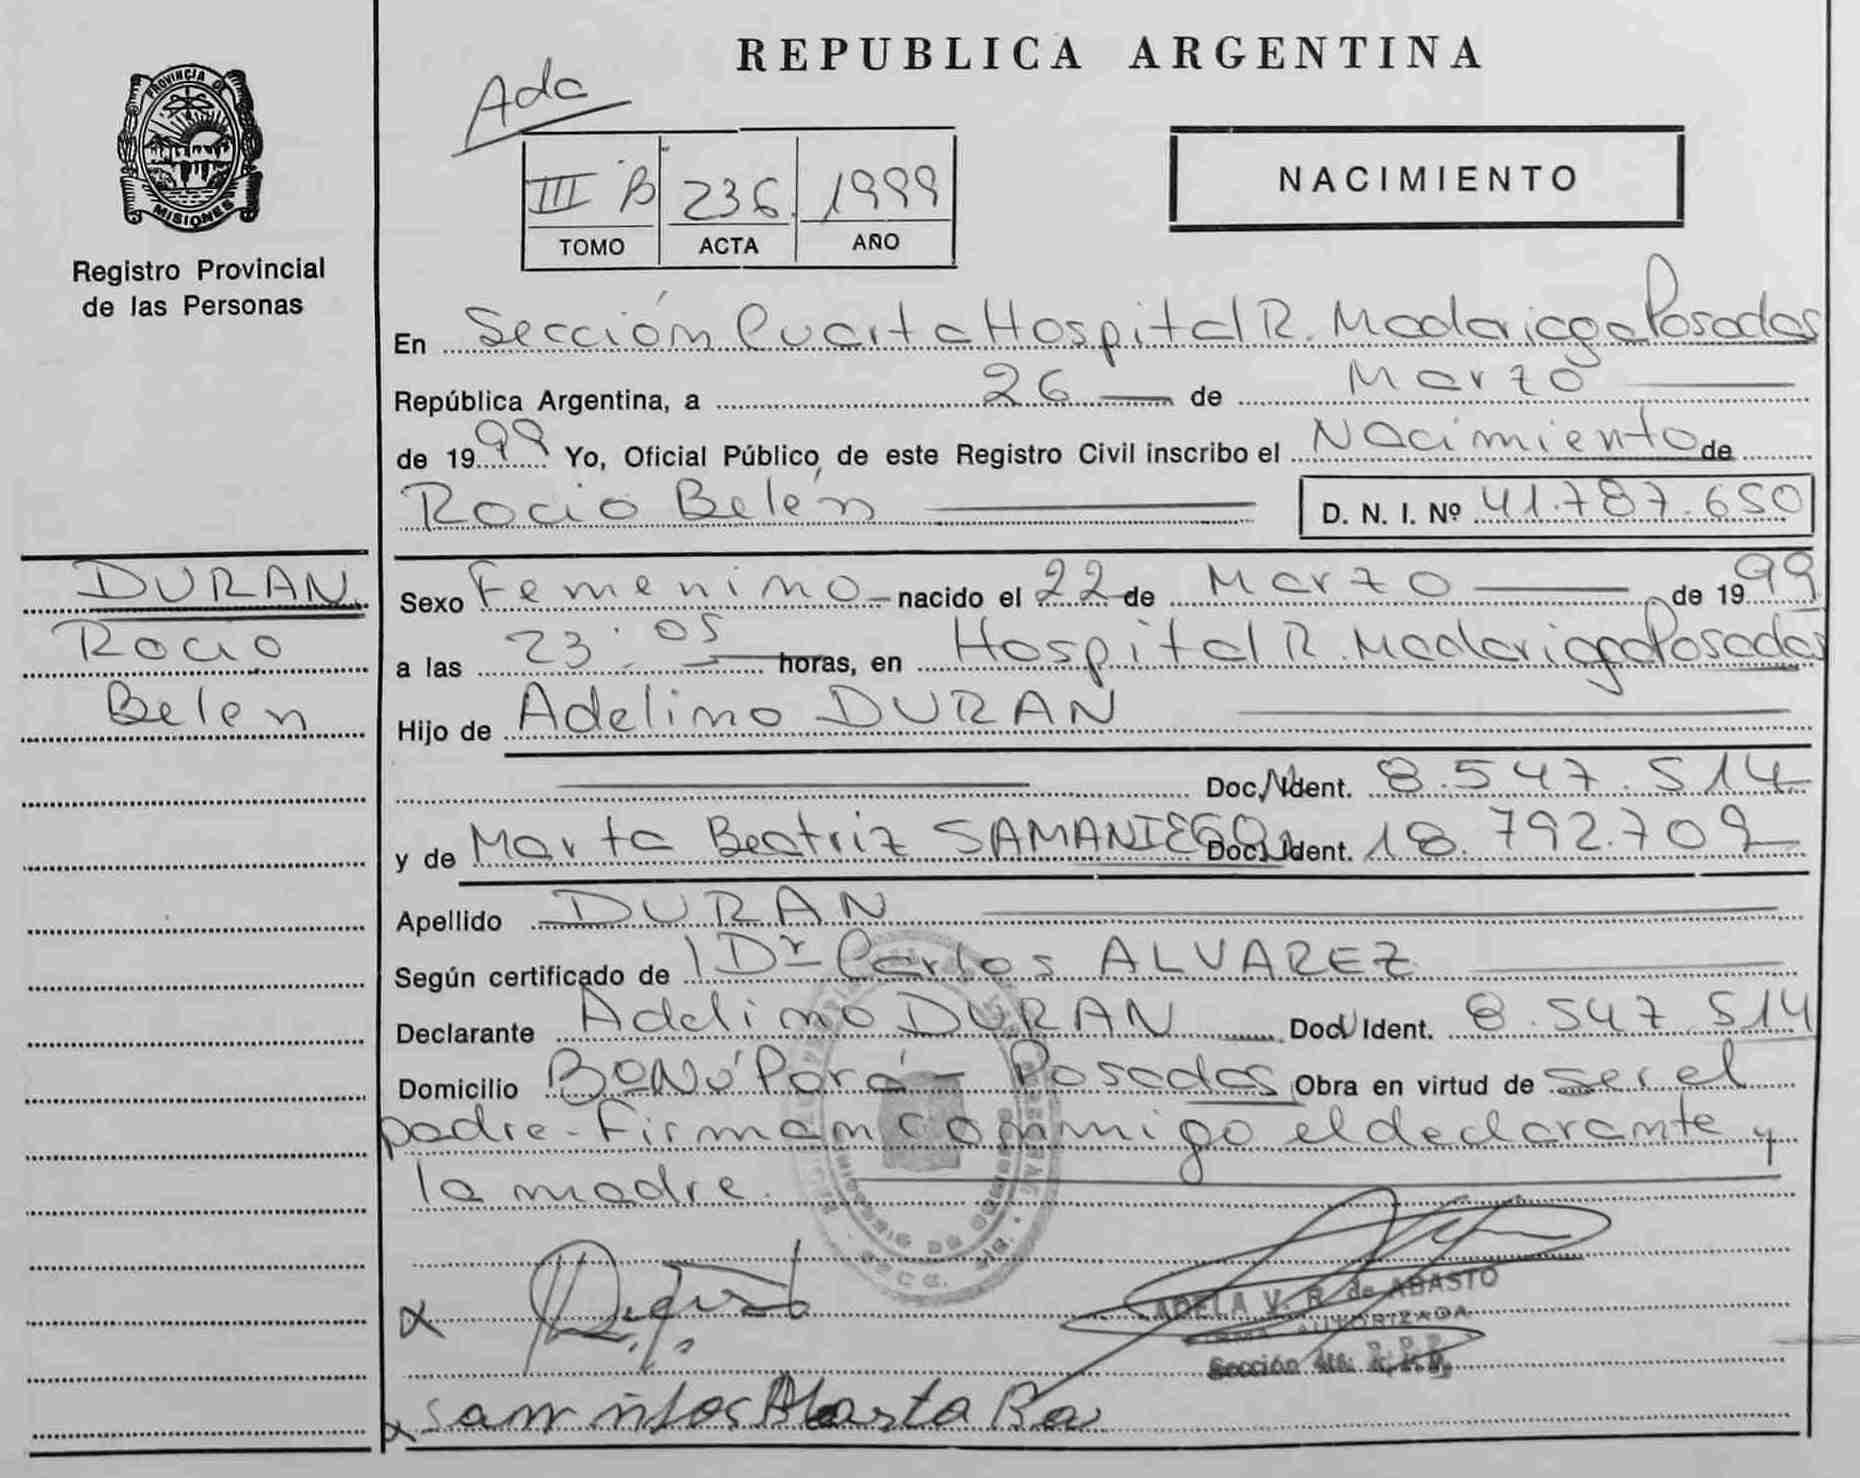 REPUBLICA ARGENTINA
Ada
PROVINCIA DE
MISIONES
Registro Provincial
de las Personas
III B 236 1999
TOMO ACTA AÑO
NACIMIENTO
En Sección Cuarta Hospital R. Madariaga Posadas
República Argentina, a 26 de Marzo
de 1999 Yo, Oficial Público de este Registro Civil inscribo el Nacimiento de
Rocio Belén D. N. I. Nº 41.787.650
DURAN
Rocio
Belen
Sexo Femenino nacido el 22 de Marzo de 1999
a las 23:05 horas, en Hospital R. Madariaga Posadas
Hijo de Adelino DURAN
Doc. Ident. 8.547.514
y de Marta Beatriz SAMANIEGO Doc. Ident. 18.792.709
Apellido DURAN
Según certificado de Dr Carlos ALVAREZ
Declarante Adelino DURAN Doc. Ident. 8.547.514
Domicilio Pará - Posadas Obra en virtud de ser el
padre - Firman conmigo el declarante y
la madre.
ADELA V. R. de ABASTO
FIRMA AUTORIZADA
Sección 4ta.
Marta